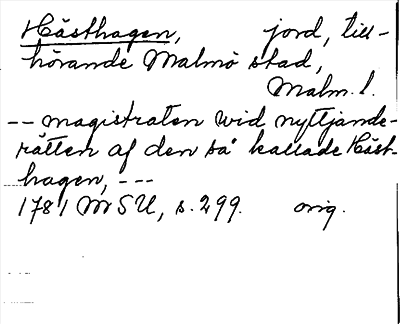 Hästhagen, jord, till-
hörande Malmö stad,
Malm. l.
-- magistraten wid nyttjande-
rätten af den så kallade Häst-
hagen, ---
1781 MSU, s. 299. orig.